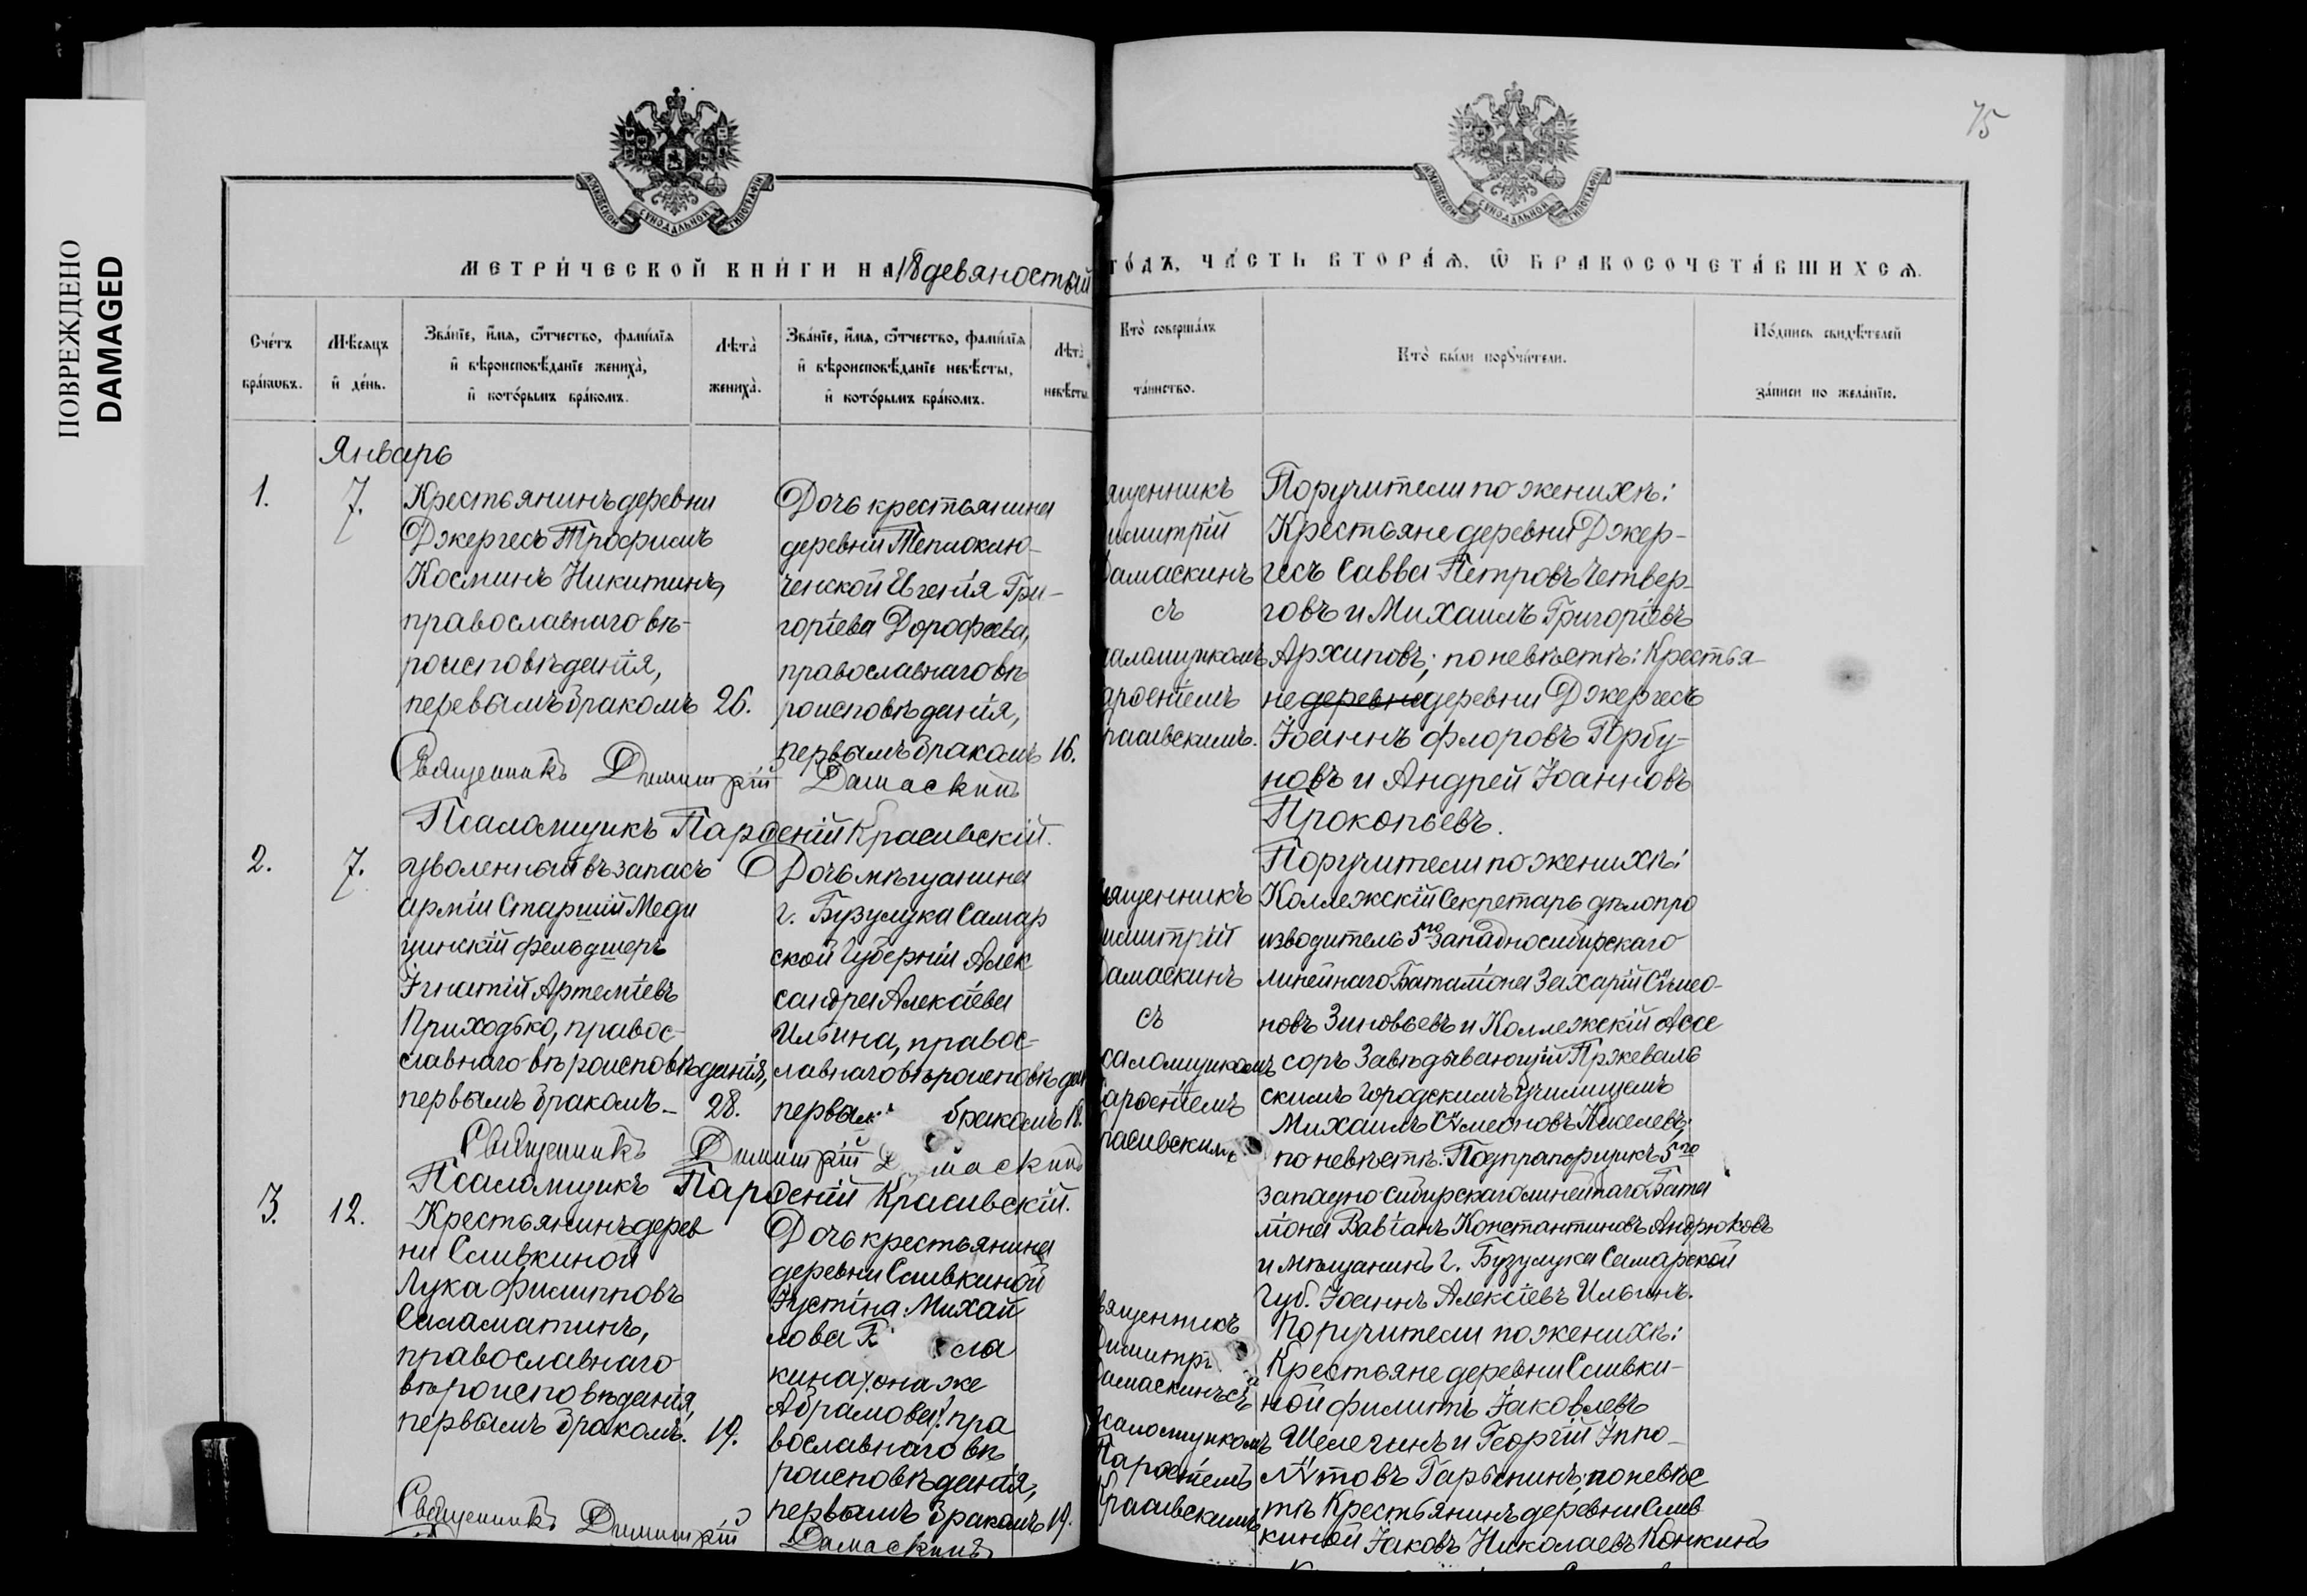 ПОВРЕЖДЕНО
DAMAGED
75
МОСКОВСКОЙ СѴНОДАЛЬНОЙ ТИПОГРАФІИ
МОСКОВСКОЙ СѴНОДАЛЬНОЙ ТИПОГРАФІИ
МЕТРИ́ЧЕСКОЙ КНИ́ГИ НА 18девяностый
го́дъ, ча́сть втора́ѧ, ѡ҆ бракосочета́вшихсѧ.
Сче́тъ
бра́кѡвъ.
Мѣ́сѧцъ
и҆ де́нь.
Зва́нїе, и҆́мѧ, ѻ҆́тчество, фами́лїѧ
и҆ вѣроисповѣ́данїе жениха̀,
и҆ кото́рымъ бра́комъ.
Лѣта̀
жениха̀.
Зва́нїе, и҆́мѧ, ѻ҆́тчество, фами́лїѧ
и҆ вѣроисповѣ́данїе невѣ́сты,
и҆ кото́рымъ бра́комъ.
Лѣта̀
невѣ́сты.
Кто̀ соверша́лъ
та́инство.
Кто̀ бы́ли порꙋчи́тели.
По́дпись свидѣ́телей
за́писи по жела́нїю.
Январь
1.
7.
Крестьянинъ деревни
Джергесъ Трофимъ
Косминъ Никитинъ,
православнаго вѣ-
роисповѣданія,
перевымъ бракомъ 26.
Дочь крестьянина
деревни Теплоклю-
ченской Евгенія Гри-
горіева Дорофеева,
православнаго вѣ
роисповѣданія,
первымъ бракомъ 16.
Священникъ Димитрій Дамаскинъ
Псаломщикъ Парѳеній Красивскій.
ященникъ
имитрій
Дамаскинъ
съ
саломщикомъ
арѳеніемъ
расивскимъ.
Поручители по женихѣ:
Крестьяне деревни Джер-
гесъ Савва Петровъ Четвер-
говъ и Михаилъ Григоріевъ
Архиповъ; по невѣстѣ: Крестья-
не деревни деревни Джергесъ
Іоаннъ Флоровъ Горбу-
новъ и Андрей Іоанновъ
Прокопьевъ.
2.
7.
уволенный въ запасъ
арміи Старшій Меди
цинскій фельдшеръ
Игнатій Артеміевъ
Приходько, правос-
славнаго вѣроисповѣданія,
первымъ бракомъ- 28.
Дочь мѣщанина
г. Бузулука Самар
ской Губерніи Алек
сандра Алексіева
Ильина, правос-
лавнаго вѣроисповѣдан
первым бракомъ 18.
Священникъ Димитрій Д маскинъ
Псаломщикъ Парѳеній Красивскій.
вященникъ
имитрій
Дамаскинъ
съ
саломщикомъ
арѳеніемъ
расивскимъ
Поручители по женихѣ:
Коллежскій Секретарь дѣлопро
изводитель 5го Западносибирскаго
линейнаго Баталіона Захарій Сѵмео-
новъ Зиновьевъ и Коллежскій Ассе
соръ Завѣдывающій Пржеваль
скимъ городскимъ училищемъ
Михаилъ Сѵмеоновъ Киселевъ;
по невѣстѣ: Подпрапорщикъ 5го
западно Сибирскаго линейнаго Бата
ліона Вавіанъ Константиновъ Андрюковъ
и мѣщанинъ г. Бузулука Самарской
Губ. Іоаннъ Алексіевъ Ильинъ.
3.
12.
Крестьянинъ дерев
ни Сливкиной
Лука Филипповъ
Саламатинъ,
православнаго
вѣроисповѣданія,
первымъ бракомъ. 19.
Дочь крестьянина
деревни Сливкиной
Іустіна Михай
лова К сла
кина /:она же
Абрамова/: пра
вославнаго вѣ
роисповѣданія,
первымъ бракомъ 19.
Священникъ Димитрій Дамаскинъ
вященникъ
Димитрі
Дамаскинъ съ
Псаломщикомъ
Парѳеніемъ
Красивскимъ
Поручители по женихѣ:
Крестьяне деревни Сливки-
ной Филиппъ Іаковлевъ
Шелегинъ и Георгій Иппо-
лѵтовъ Гарькинъ; по невѣс
тѣ Крестьянинъ деревни Слив
киной Іаковъ Николаевъ Конкинъ